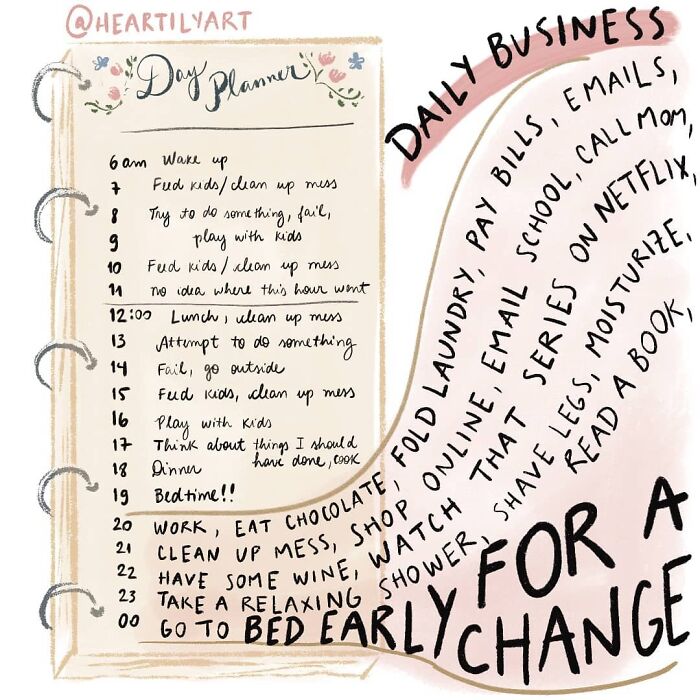 @HEARTILYART
Day Planner
DAILY BUSINESS
6 am Wake up
7 Feed kids/clean up mess
8 Try to do something, fail,
9 play with kids
10 Feed kids/clean up mess
11 no idea where this hour went
12:00 Lunch, clean up mess
13 Attempt to do something
14 Fail, go outside
15 Feed kids, clean up mess
16 Play with kids
17 Think about things I should
have done, cook
18 Dinner
19 Bedtime!!
20 WORK, EAT CHOCOLATE, FOLD LAUNDRY, PAY BILLS, EMAILS,
21 CLEAN UP MESS, SHOP ONLINE, EMAIL SCHOOL, CALL MOM,
22 HAVE SOME WINE, WATCH THAT SERIES ON NETFLIX,
23 TAKE A RELAXING SHOWER, SHAVE LEGS, MOISTURIZE,
READ A BOOK,
00 GO TO BED EARLY FOR A
CHANGE